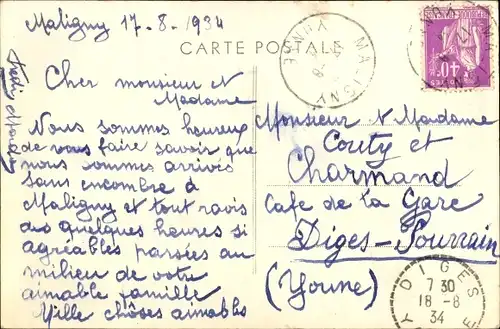 Maligny 17-8-1934
CARTE POSTALE
Cher monsieur et
Madame
Nous sommes heureux
de vous faire savoir que
nous sommes arrivés
sans encombre à
Maligny et tout ravis
des quelques heures si
agréables passées au
milieu de votre
aimable famille
Mille chôses aimables
Monsieur et Madame
Couty et
Charmand
Cafe de la Gare
Diges-Pourrain
(Yonne)
MALIGNY
YONNE
40c
DIGES
7 30
18-8
34